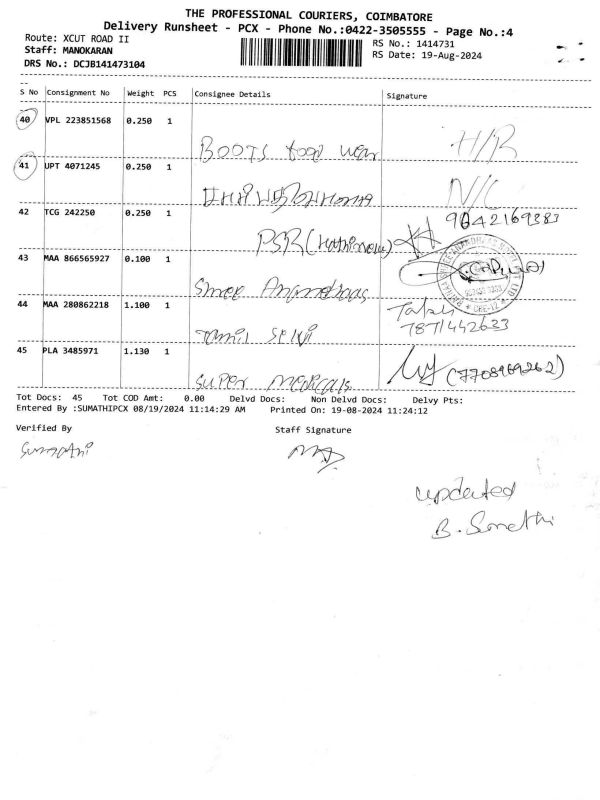 THE PROFESSIONAL COURIERS, COIMBATORE
Delivery Runsheet - PCX - Phone No.:0422-3505555 - Page No.:4
Route: XCUT ROAD II
RS No.: 1414731
Staff: MANOKARAN
RS Date: 19-Aug-2024
DRS No.: DCJB141473104
S No Consignment No Weight PCS Consignee Details Signature
40 VPL 223851568 0.250 1
BOOTS foot wear H/R
41 UPT 4071245 0.250 1
N/C
42 TCG 242250 0.250 1 9042169383
PSR
43 MAA 866565927 0.100 1
Smee
44 MAA 280862218 1.100 1
Tamil Selvi 7871442633
45 PLA 3485971 1.130 1
Super Medicals (7708969262)
Tot Docs: 45 Tot COD Amt: 0.00 Delvd Docs: Non Delvd Docs: Delvy Pts:
Entered By :SUMATHIPCX 08/19/2024 11:14:29 AM Printed On: 19-08-2024 11:24:12
Verified By Staff Signature
Sumathi
updated
B. Sumathi